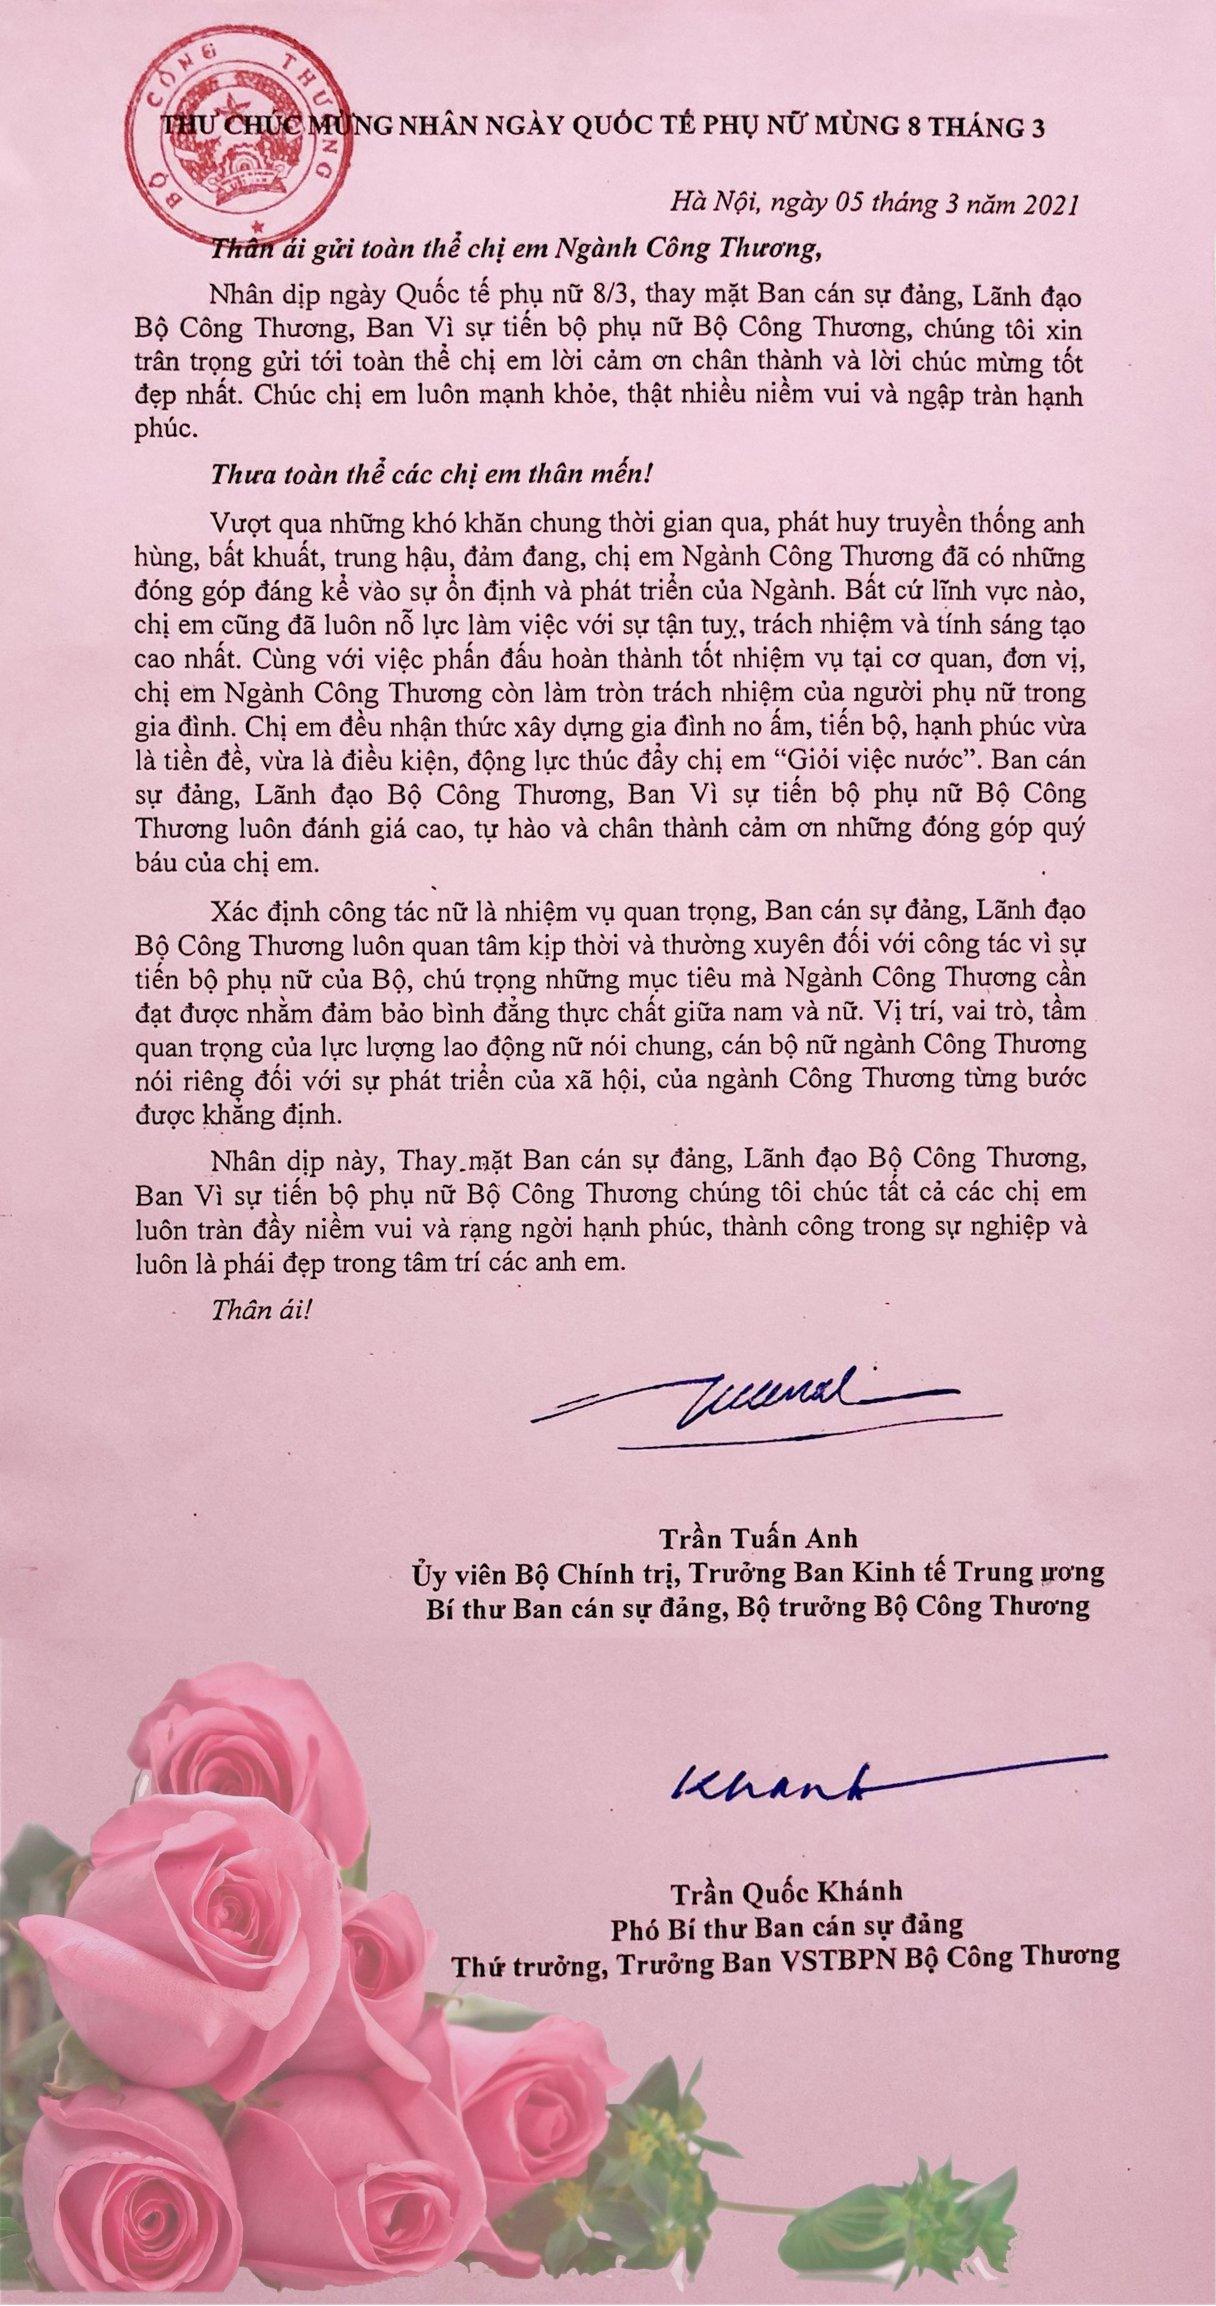 BỘ CÔNG THƯƠNG
THƯ CHÚC MỪNG NHÂN NGÀY QUỐC TẾ PHỤ NỮ MÙNG 8 THÁNG 3
Hà Nội, ngày 05 tháng 3 năm 2021
Thân ái gửi toàn thể chị em Ngành Công Thương,
Nhân dịp ngày Quốc tế phụ nữ 8/3, thay mặt Ban cán sự đảng, Lãnh đạo
Bộ Công Thương, Ban Vì sự tiến bộ phụ nữ Bộ Công Thương, chúng tôi xin
trân trọng gửi tới toàn thể chị em lời cảm ơn chân thành và lời chúc mừng tốt
đẹp nhất. Chúc chị em luôn mạnh khỏe, thật nhiều niềm vui và ngập tràn hạnh
phúc.
Thưa toàn thể các chị em thân mến!
Vượt qua những khó khăn chung thời gian qua, phát huy truyền thống anh
hùng, bất khuất, trung hậu, đảm đang, chị em Ngành Công Thương đã có những
đóng góp đáng kể vào sự ổn định và phát triển của Ngành. Bất cứ lĩnh vực nào,
chị em cũng đã luôn nỗ lực làm việc với sự tận tuỵ, trách nhiệm và tính sáng tạo
cao nhất. Cùng với việc phấn đấu hoàn thành tốt nhiệm vụ tại cơ quan, đơn vị,
chị em Ngành Công Thương còn làm tròn trách nhiệm của người phụ nữ trong
gia đình. Chị em đều nhận thức xây dựng gia đình no ấm, tiến bộ, hạnh phúc vừa
là tiền đề, vừa là điều kiện, động lực thúc đẩy chị em “Giỏi việc nước”. Ban cán
sự đảng, Lãnh đạo Bộ Công Thương, Ban Vì sự tiến bộ phụ nữ Bộ Công
Thương luôn đánh giá cao, tự hào và chân thành cảm ơn những đóng góp quý
báu của chị em.
Xác định công tác nữ là nhiệm vụ quan trọng, Ban cán sự đảng, Lãnh đạo
Bộ Công Thương luôn quan tâm kịp thời và thường xuyên đối với công tác vì sự
tiến bộ phụ nữ của Bộ, chú trọng những mục tiêu mà Ngành Công Thương cần
đạt được nhằm đảm bảo bình đẳng thực chất giữa nam và nữ. Vị trí, vai trò, tầm
quan trọng của lực lượng lao động nữ nói chung, cán bộ nữ ngành Công Thương
nói riêng đối với sự phát triển của xã hội, của ngành Công Thương từng bước
được khẳng định.
Nhân dịp này, Thay mặt Ban cán sự đảng, Lãnh đạo Bộ Công Thương,
Ban Vì sự tiến bộ phụ nữ Bộ Công Thương chúng tôi chúc tất cả các chị em
luôn tràn đầy niềm vui và rạng ngời hạnh phúc, thành công trong sự nghiệp và
luôn là phái đẹp trong tâm trí các anh em.
Thân ái!
Trần Tuấn Anh
Ủy viên Bộ Chính trị, Trưởng Ban Kinh tế Trung ương
Bí thư Ban cán sự đảng, Bộ trưởng Bộ Công Thương
Khanh
Trần Quốc Khánh
Phó Bí thư Ban cán sự đảng
Thứ trưởng, Trưởng Ban VSTBPN Bộ Công Thương